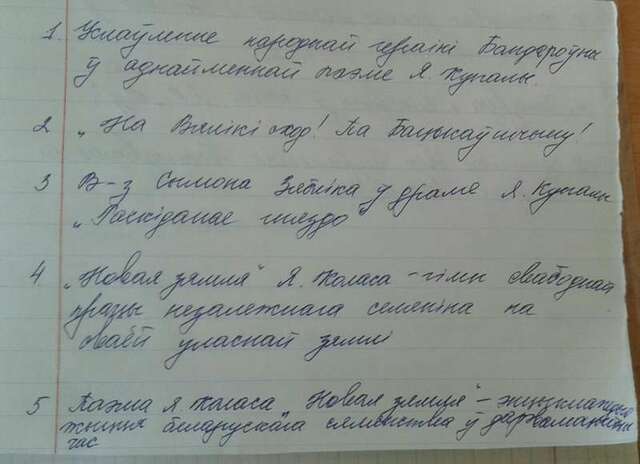 1. Услаўленне народнай гераіні Бандароўны
ў аднайменнай паэме Я. Купалы.
2 „На Вялікі сход! Па Бацькаўшчыну!
3 В-з Сымона Зябліка ў драме Я. Купалы
„Раскіданае гняздо"
4 „Новая зямля" Я. Коласа - гімн свабоднай
працы незалежнага селяніна на
сваёй уласнай зямлі
5 Паэма Я Коласа „Новая зямля" - энцыклапедыя
жыцця беларускага сялянства ў
час